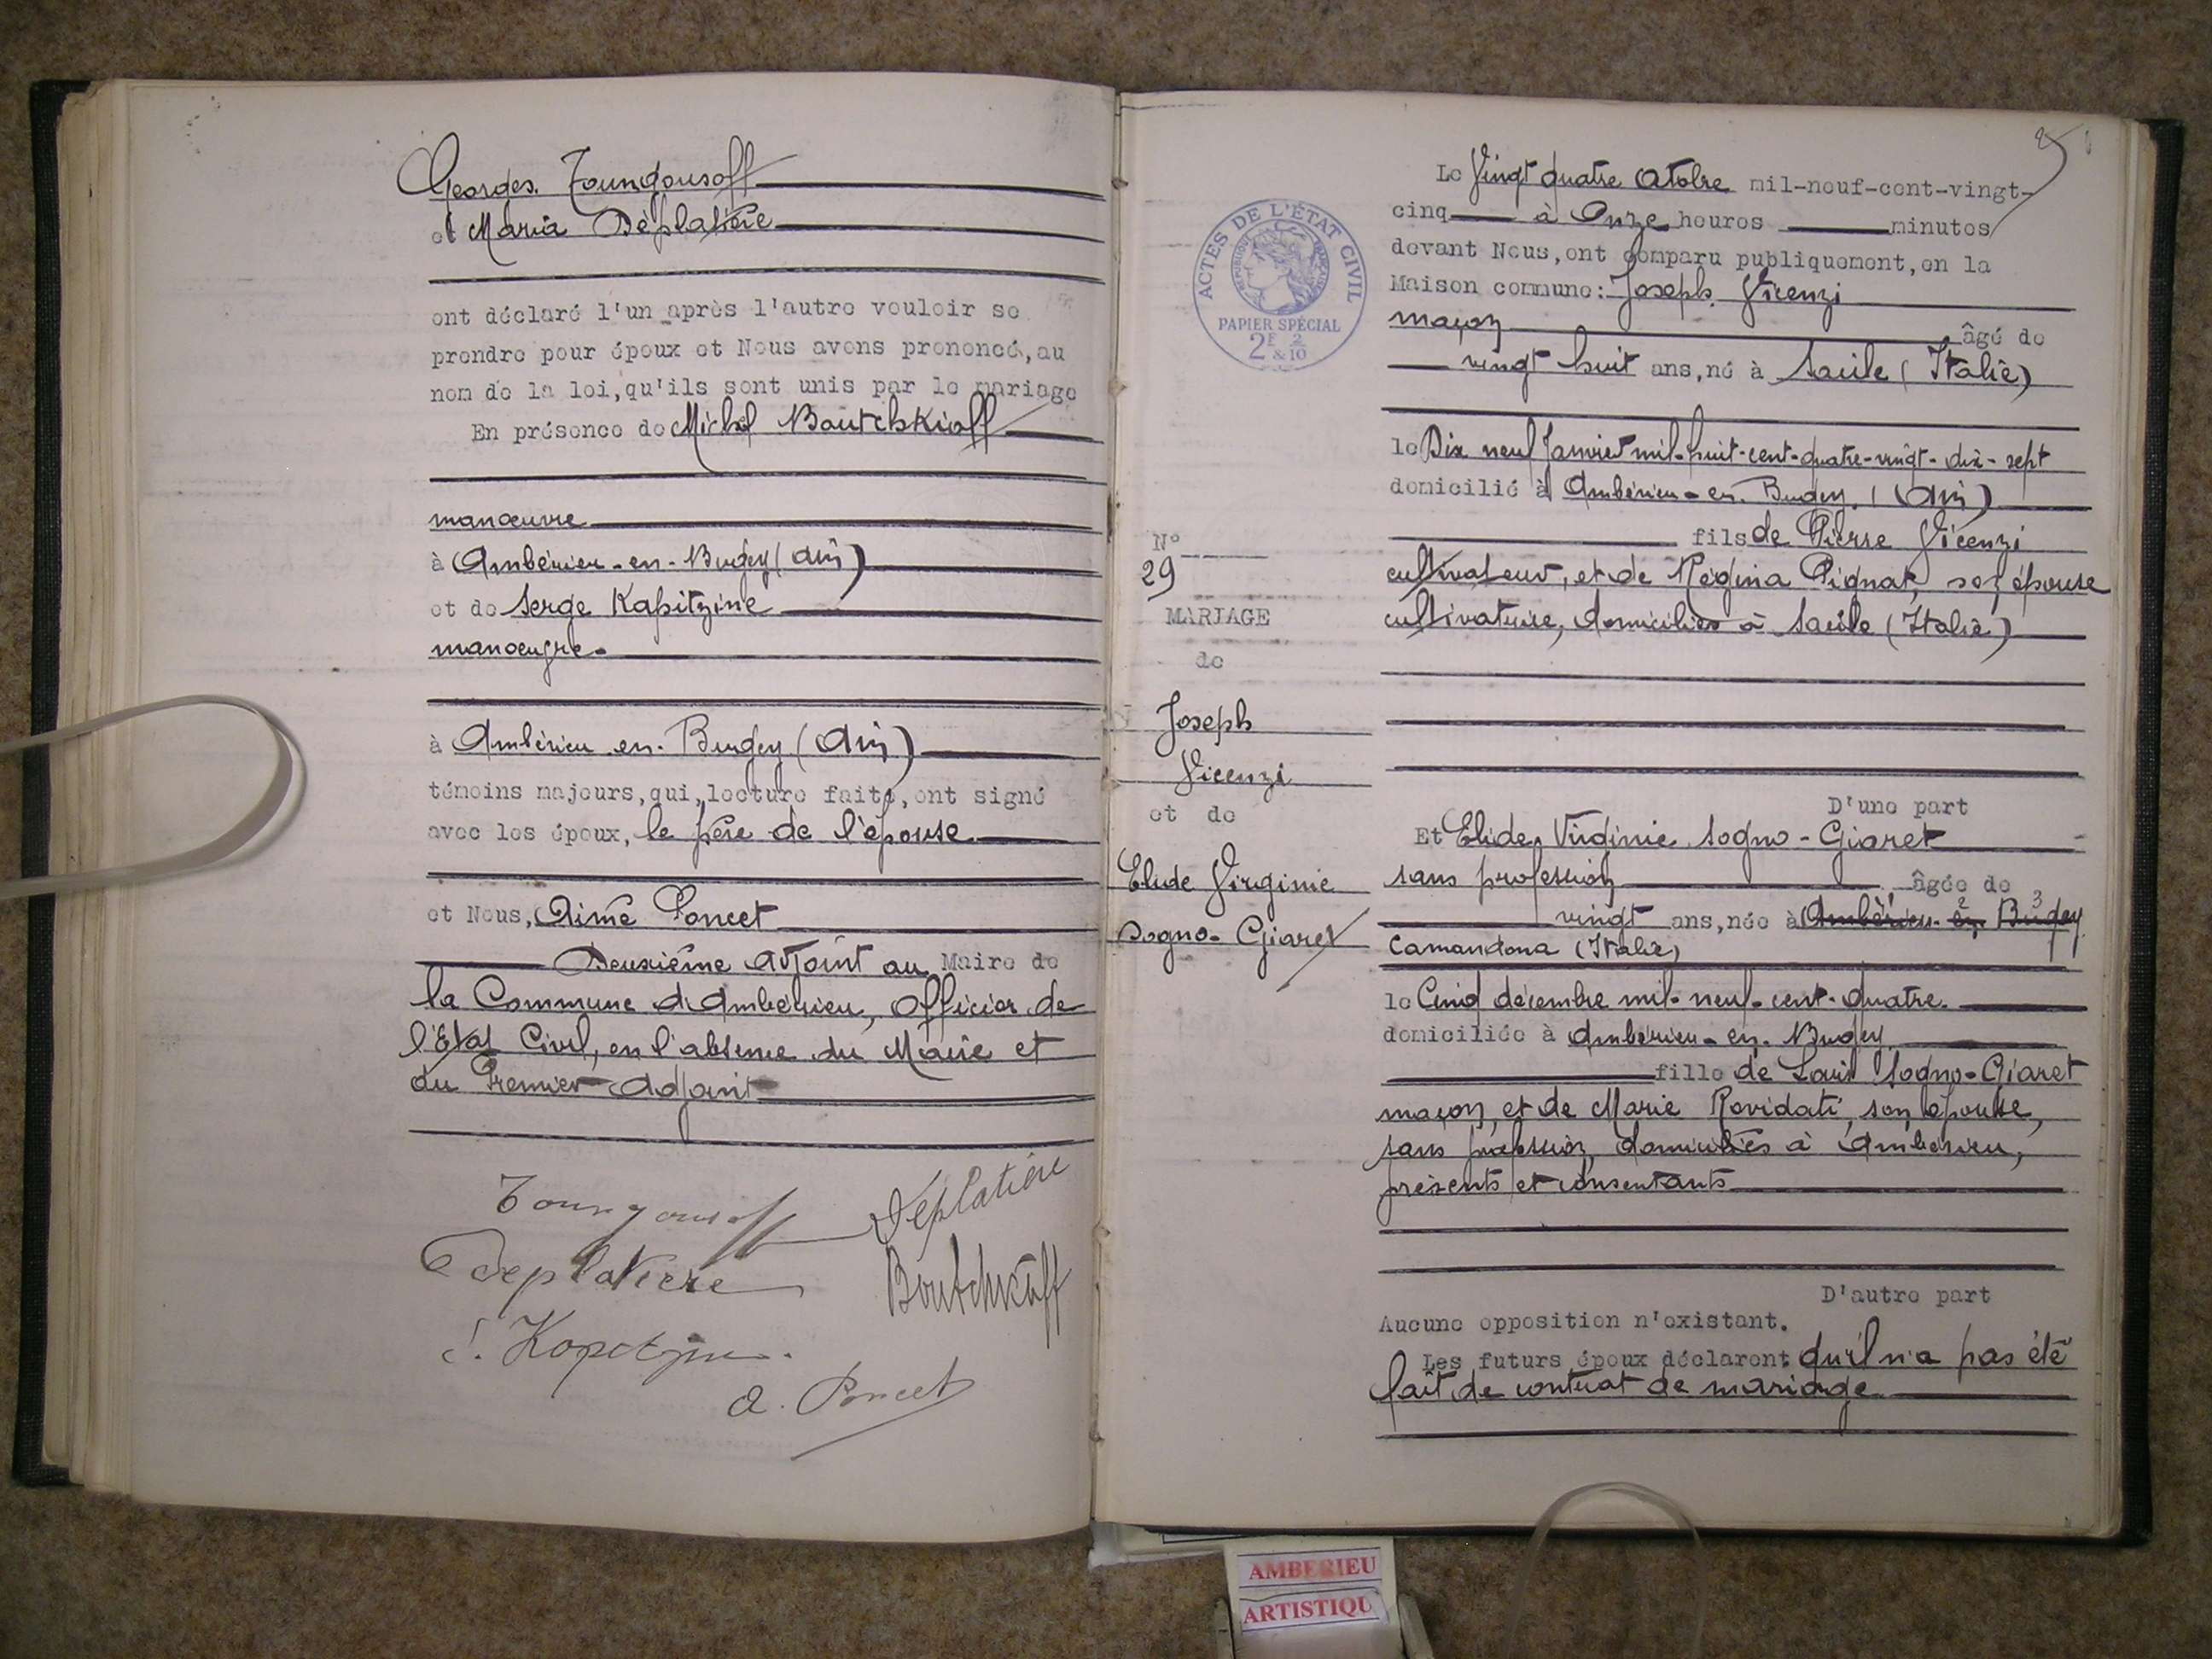 Georges Toungousoff
et Maria Déplatière
ont déclaré l'un après l'autre vouloir se
prendre pour époux et Nous avons prononcé, au
nom de la loi, qu'ils sont unis par le mariage
En présence de Michel Boutchkioff
manœuvre
à Ambérieu-en-Bugey (Ain)
et de Serge Kapitzine
manœuvre.
à Ambérieu-en-Bugey (Ain)
témoins majeurs, qui, lecture faite, ont signé
avec les époux, le père de l'épouse
et Nous, Aimé Poncet
Deuxième Adjoint au Maire de
la Commune d'Ambérieu, Officier de
l'Etat Civil, en l'absence du Maire et
du Premier Adjoint
Toungousoff
Déplatière
Deplatiere
Boutchkoff
A. Poncet
25
ACTES DE L'ÉTAT CIVIL
RÉPUBLIQUE FRANÇAISE
PAPIER SPÉCIAL
2F 2
& 10
N°
29
MARIAGE
de
Joseph
Vicenzi
et de
Elide Virginie
Sogno-Giaret
Le Vingt quatre Octobre mil-neuf-cent-vingt-
cinq à Onze heures minutes
devant Nous, ont comparu publiquement, en la
Maison commune: Joseph Vicenzi
maçon âgé de
vingt huit ans, né à Sacile (Italie)
le Dix neuf Janvier mil-huit-cent-quatre-vingt-dix-sept
domicilié à Ambérieu-en-Bugey (Ain)
fils de Pierre Vicenzi
cultivateur, et de Régina Pignat, son épouse
cultivatrice, domiciliés à Sacile (Italie)
D'une part
Et Elide, Virginie Sogno-Giaret
sans profession âgée de
vingt ans, née à Ambérieu-en-Bugey
Camandona (Italie)
le Cinq décembre mil-neuf-cent-quatre
domiciliée à Ambérieu-en-Bugey
fille de Louis Sogno-Giaret
maçon, et de Marie Rovidati, son épouse,
sans profession, domiciliés à Ambérieu,
présents et consentants
D'autre part
Aucune opposition n'existant.
Les futurs époux déclarent qu'il n'a pas été
fait de contrat de mariage
AMBERIEU
ARTISTIQU